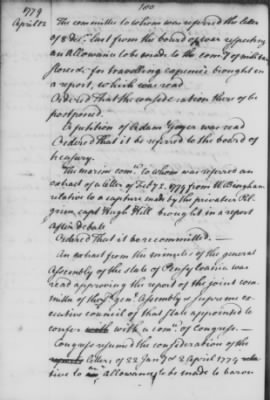 100
1779
April 12
The committee to whom was referred the letter
of 8 decr. last from the board of war respecting
an Allowance to be made to the comy of military
stores for travelling expences brought in
a report, which was read
Ordered That the consideration thereof be
postponed.
A petition of Adam Goyer was read
Ordered That it be referred to the board of
treasury.
The marine comee. to whom was referred an
extract of a letter of Feby 2. 1779 from W Bingham
relative to a capture made by the privateer Pil-
grim, capt Hugh Hill brought in a report
After debate
Ordered that it be recommitted. —
An extract from the minutes of the general
Assembly of the state of Pensylvania was
read approving the report of the joint com-
mittee of the sd. genl. Assembly & supreme ex-
ecutive council of that state appointed to
confer with with a comee. of Congress. —
Congress resumed the consideration of the
reports letters of 22 Jany & 2 April 1779 rela-
tive to an allowance to be made to baron